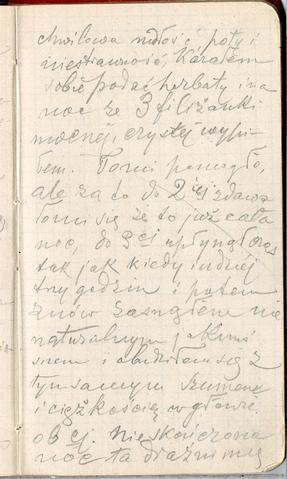 chwilowa mdłość, poty i
niestrawność, Kazałem
sobie podać herbaty i na
noc ze 3 filiżanki
mocnej, czystej wypi-
łem. To mi pomogło,
ale za to do 2 ej zdawa
ło mi się że to już cała
noc, do 3 ej upłynął czas
tak jak kiedy indziej
trzy godzin i potem
znów zasnąłem nie
naturalnym jakimś
snem i obudziłem się z
tym samym szumem
i ciężkością w głowie.
o 6 ej. Nieskończona
noc ta drażni mię